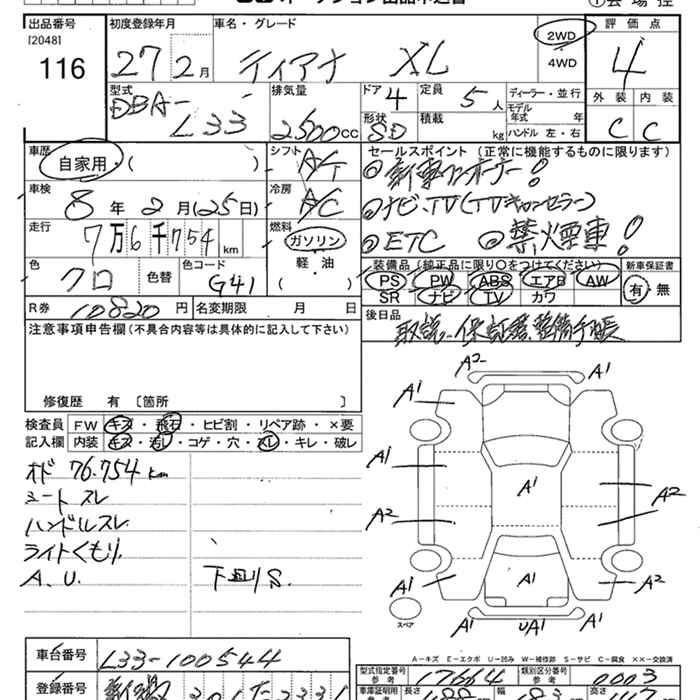 出品番号 初度登録年月 車名・グレード 2WD 評価点
[2048]
116 27 2月 ティアナ XL 4WD 4
型式 DBA-L33 排気量 2500cc ドア 4 定員 5人 ディーラー・並行 外装 内装
形状 SD 積載 kg モデル年式 年 ハンドル 左・右 C C
車歴 自家用・( ) シフト A/T セールスポイント (正常に機能するものに限ります)
車検 8年2月(25日) 冷房 A/C ◎新車ワンオーナー!
◎ナビ.TV(TVキャンセラー)
走行 7万6千754km 燃料 ガソリン ◎ETC ◎禁煙車!
軽・油
( )
色 クロ 色替 色コード G41 装備品(純正品に限り○をつけてください) 新車保証書
PS PW ABS エアB AW 有・無
SR ナビ TV カワ
R券 10820円 名変期限 月 日 後日品
取説.保証書.整備手帳
注意事項申告欄(不具合内容等は具体的に記入して下さい)
修復歴 有 [箇所 ]
検査員 FW キズ・飛石・ヒビ割・リペア跡・×要
記入欄 内装 キズ・汚レ・コゲ・穴・スレ・キレ・破レ
オド 76.754km
シートスレ
ハンドルスレ
ライトくもり
A.U. 下回りS.
A2 A1
A1 A1
A1 A1 A2
A2
A1 A1 A2
A1 UA1 A1
スペア
A-キズ E-エクボ U-凹み W-補修跡 S-サビ C-腐食 XX-交換済
車台番号 L33-100544
型式指定番号 参考 17664 類別区分番号 参考 0003
登録番号
車庫証明用 長さ 488cm 幅 183cm 高さ